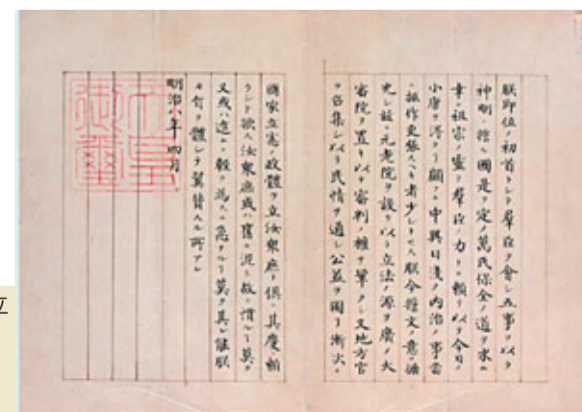 朕即位ノ初首トシテ群臣ヲ會シ五事ヲ以テ
神明ニ誓ヒ國是ヲ定メ萬民保全ノ道ヲ求ム
幸ニ祖宗ノ靈ト群臣ノ力トニ頼リ以テ今日ノ
小康ヲ得タリ顧ニ中興日淺ク内治ノ事當
ニ振作更張スヘキ者少シトセス朕今誓文ノ意ヲ擴
充シ茲ニ元老院ヲ設ケ以テ立法ノ源ヲ廣メ大
審院ヲ置キ以テ審判ノ權ヲ鞏クシ又地方官
ヲ召集シ以テ民情ヲ通シ公益ヲ圖リ漸次ニ
國家立憲ノ政體ヲ立テ汝衆庶ト倶ニ其慶ニ頼
ラント欲ス汝衆庶或ハ舊ニ泥ミ故ニ慣ルヽコト莫ク
又或ハ進ムニ輕ク為スニ急ナルコト莫ク其レ能朕
カ旨ヲ體シテ翼贊スル所アレ
明治八年四月
天皇
御璽
立